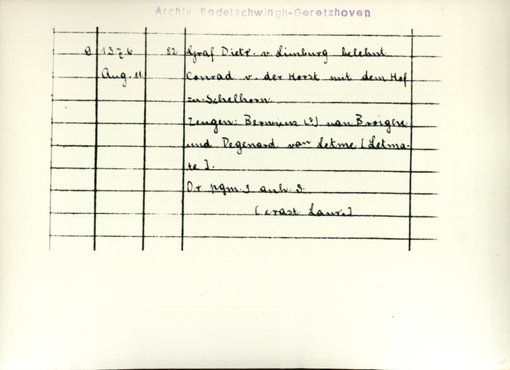 Archiv Bodelschwingh-Geretzhoven
9 1376 82 Graf Dietr. v. Limburg belehnt
Aug. 11 Conrad v. der Horst mit dem Hof
zu Schelhorn.
Zeugen: (?) van
und Degenard van Letme [Letma-
te].
Or pgm. 1 anh. S.
[crast Laur.]